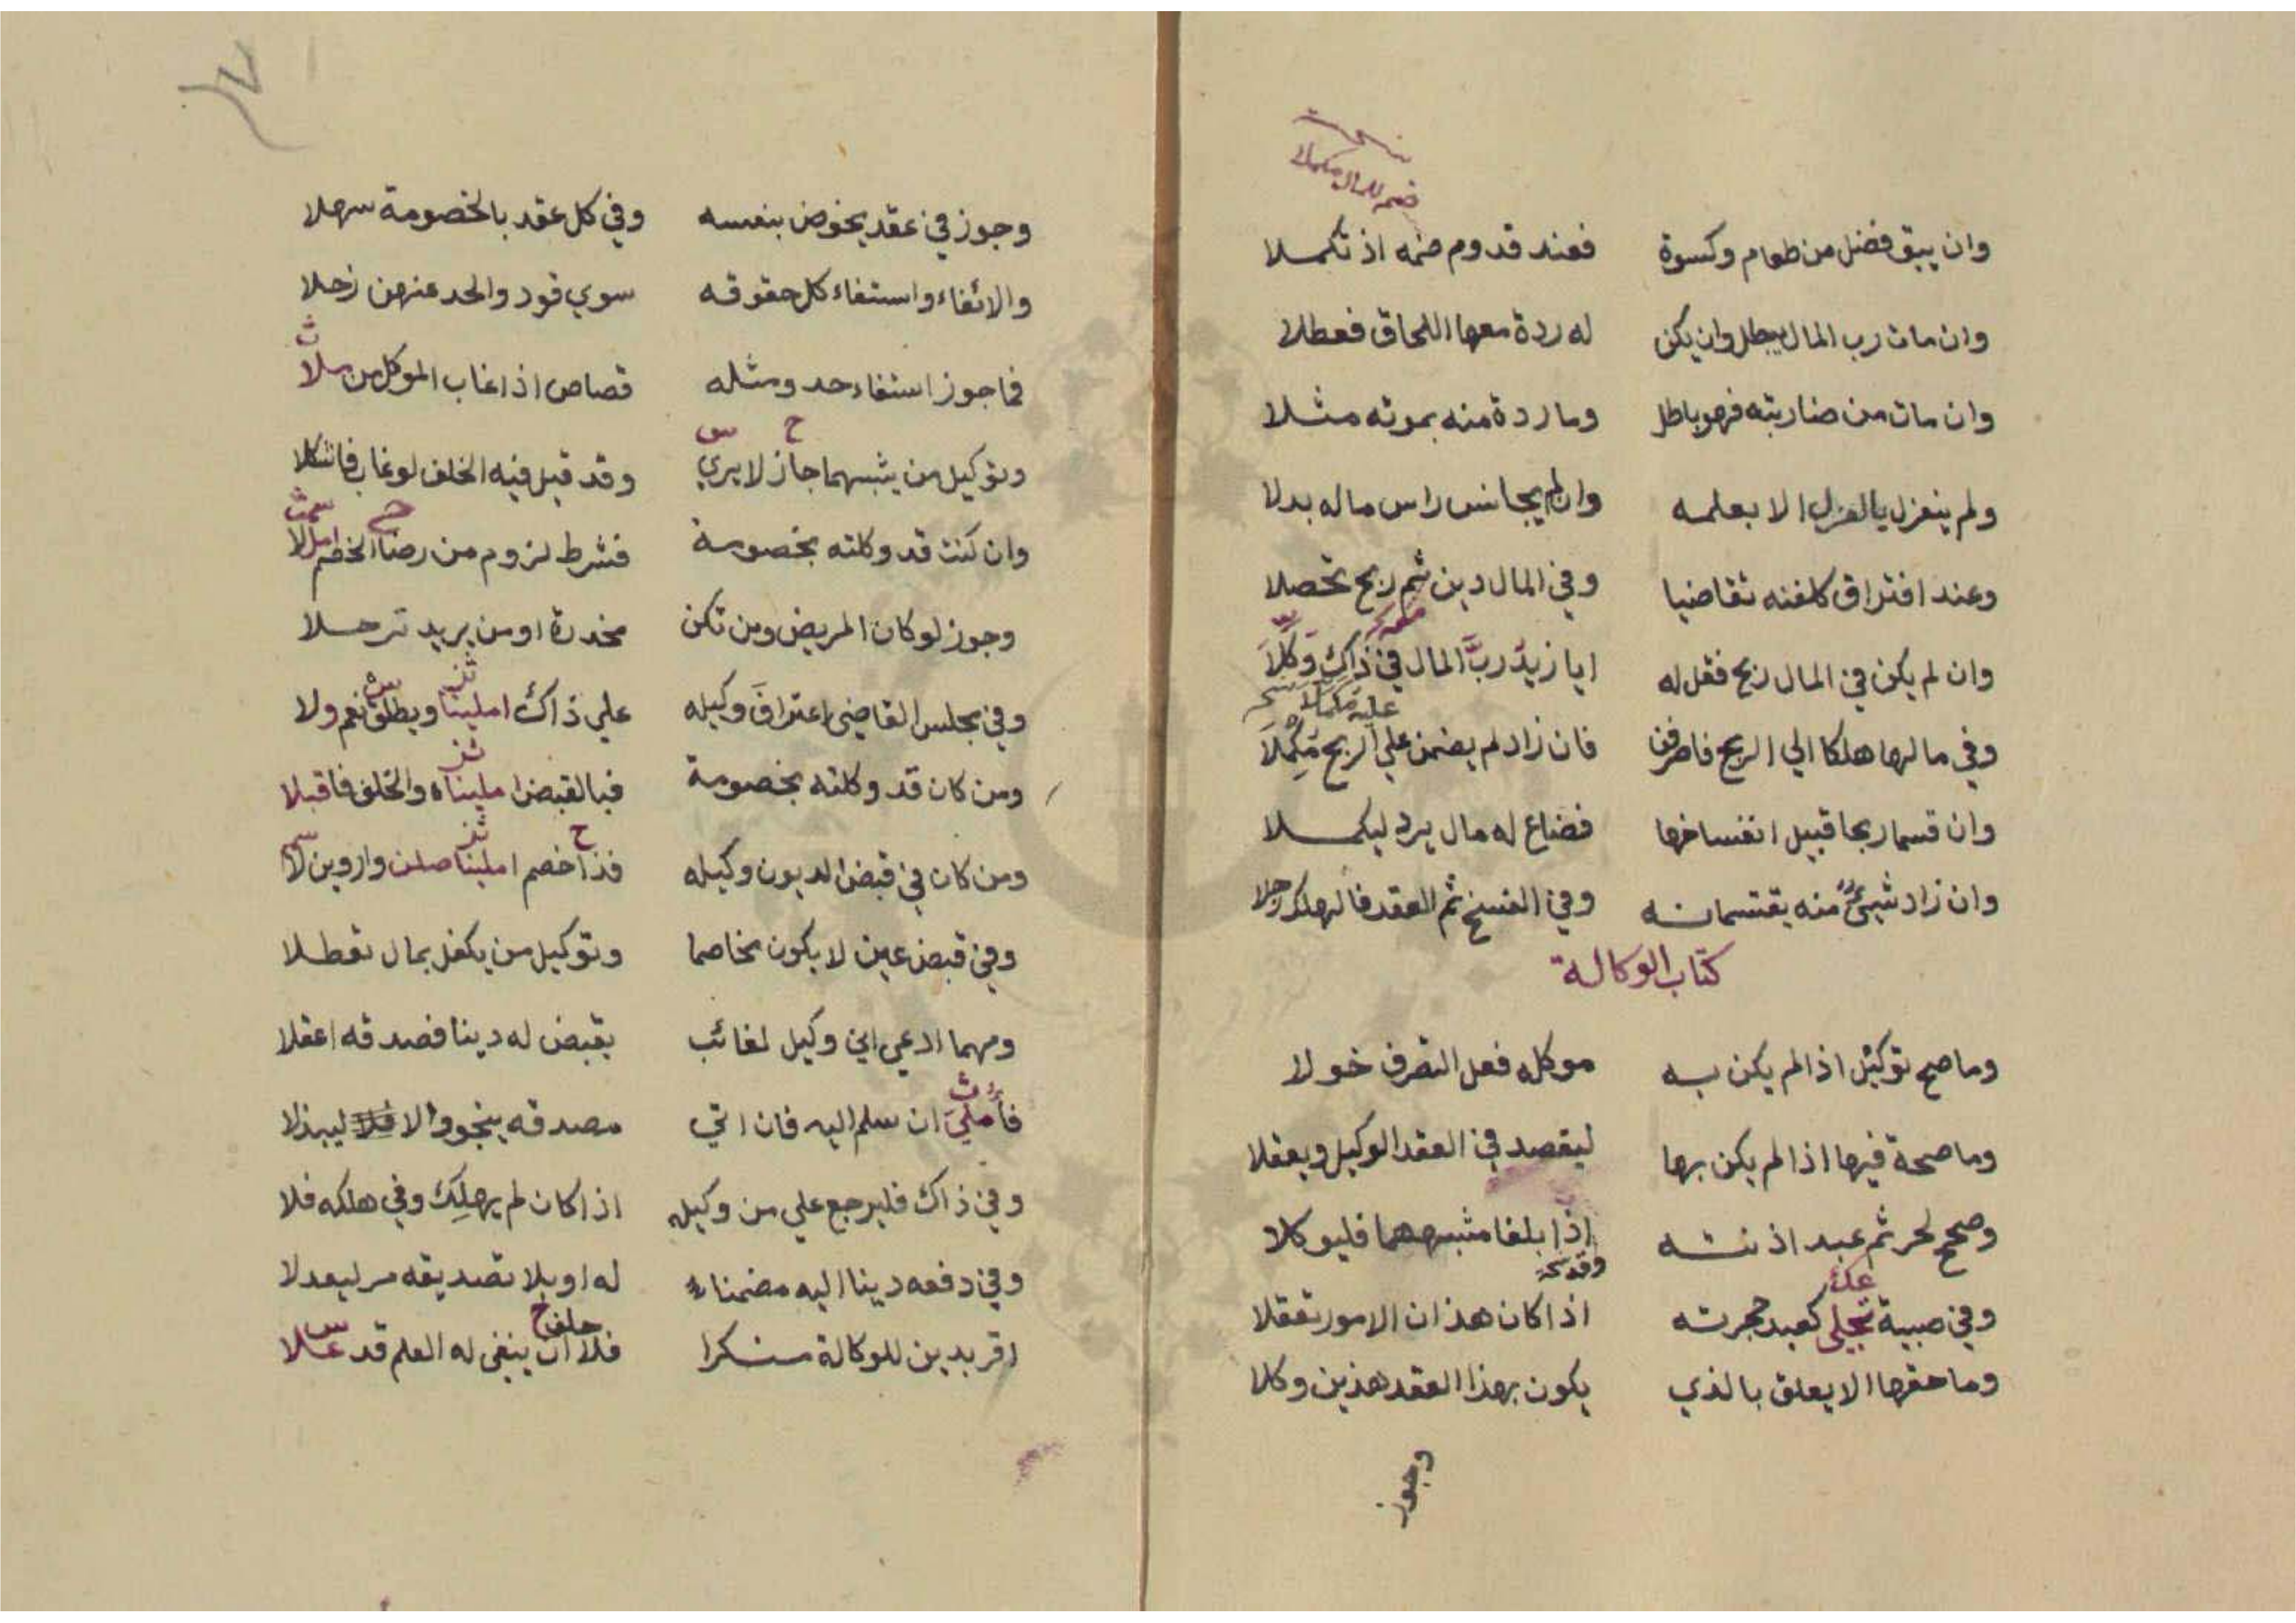 وان يبق فضل من طعام وكسوة فعند قدوم ضمه اذ تكملا
وان مات رب المال يبطل وان يكن له ردة معها اللحاق فعطلا
وان مات من ضاربته فهو باطل وما ردة منه بموته مثلا
ولم ينعزل بالعزل الا بعلمه وان لم يجانس راس ماله بدلا
وعند افتراق كلفنه تقاضيا وفي المال دين ثم ربح تحصلا
وان لم يكن في المال ربح فقل له ايا زيد رب المال في ذاك وكلا
وفي مالها هلكا الي الربح فاصرفن فان زاد لم يضمن علي الربح مكملا
وان قسما ربحا قبيل انفساخها فضاع له مال يرد ليكملا
وان زاد شيئ منه يقتسمانه وفي الفسخ ثم العقد فالهلك
كتاب الوكالة
وما صح توكيل اذا لم يكن به موكله فعل التصرف خولا
وما صحة فيها اذا لم يكن بها ليقصد في العقد الوكيل ويعقلا
وصحح لحر ثم عبد اذنته اذا بلغا مثبههما فليوكلا
وفي صبية تجلي كعبد حجرته اذا كان هذان الامور تعقلا
وما حقها الا يعلق بالذي يكون بهذا العقد هذين وكلا
وجوز
وجوز في عقد يخوض بنفسه وفي كل عقد بالخصومة سهلا
والائفاء واستفاء كل حقوقه سوي قود والحد عنهن زحلا
فما جوز استفاء حد ومثله قصاص اذا غاب الموكل من ملا
وتوكيل من يثبهما جاز لا يري وقد قيل فيه الخلف لو غاب فاشكلا
وان كنت قد وكلته بخصومة فشرط لزوم من رضا الخصم
وجوز لو كان المريض ومن تكن مخدرة او من يريد ترحلا
وفي مجلس القاضي اعتراف وكيله علي ذاك املينا ويطلق نعم ولا
ومن كان قد وكلته بخصومة فبالقبض املينا والخلف فاقبلا
ومن كان في قبض الديون وكيله فذا خصم املينا صلن واروين لا
وفي قبض عين لا يكون مخاصما وتوكيل من يكفل بمال تعطلا
ومهما ادعي اني وكيل لغائب بقبض له دينا فصدقه اعقلا
فأملي ان سلم اليه فان اتي مصدقه ينجو والا ليبذلا
وفي ذاك فليرجع علي من وكيله اذا كان لم يهلك وفي هلكه فلا
وفي دفعه دينا اليه مضمنا له او بلا تصديقه مر ليعدلا
اقر بدين للوكالة منكرا فلا ان ينفي له العلم قد علا